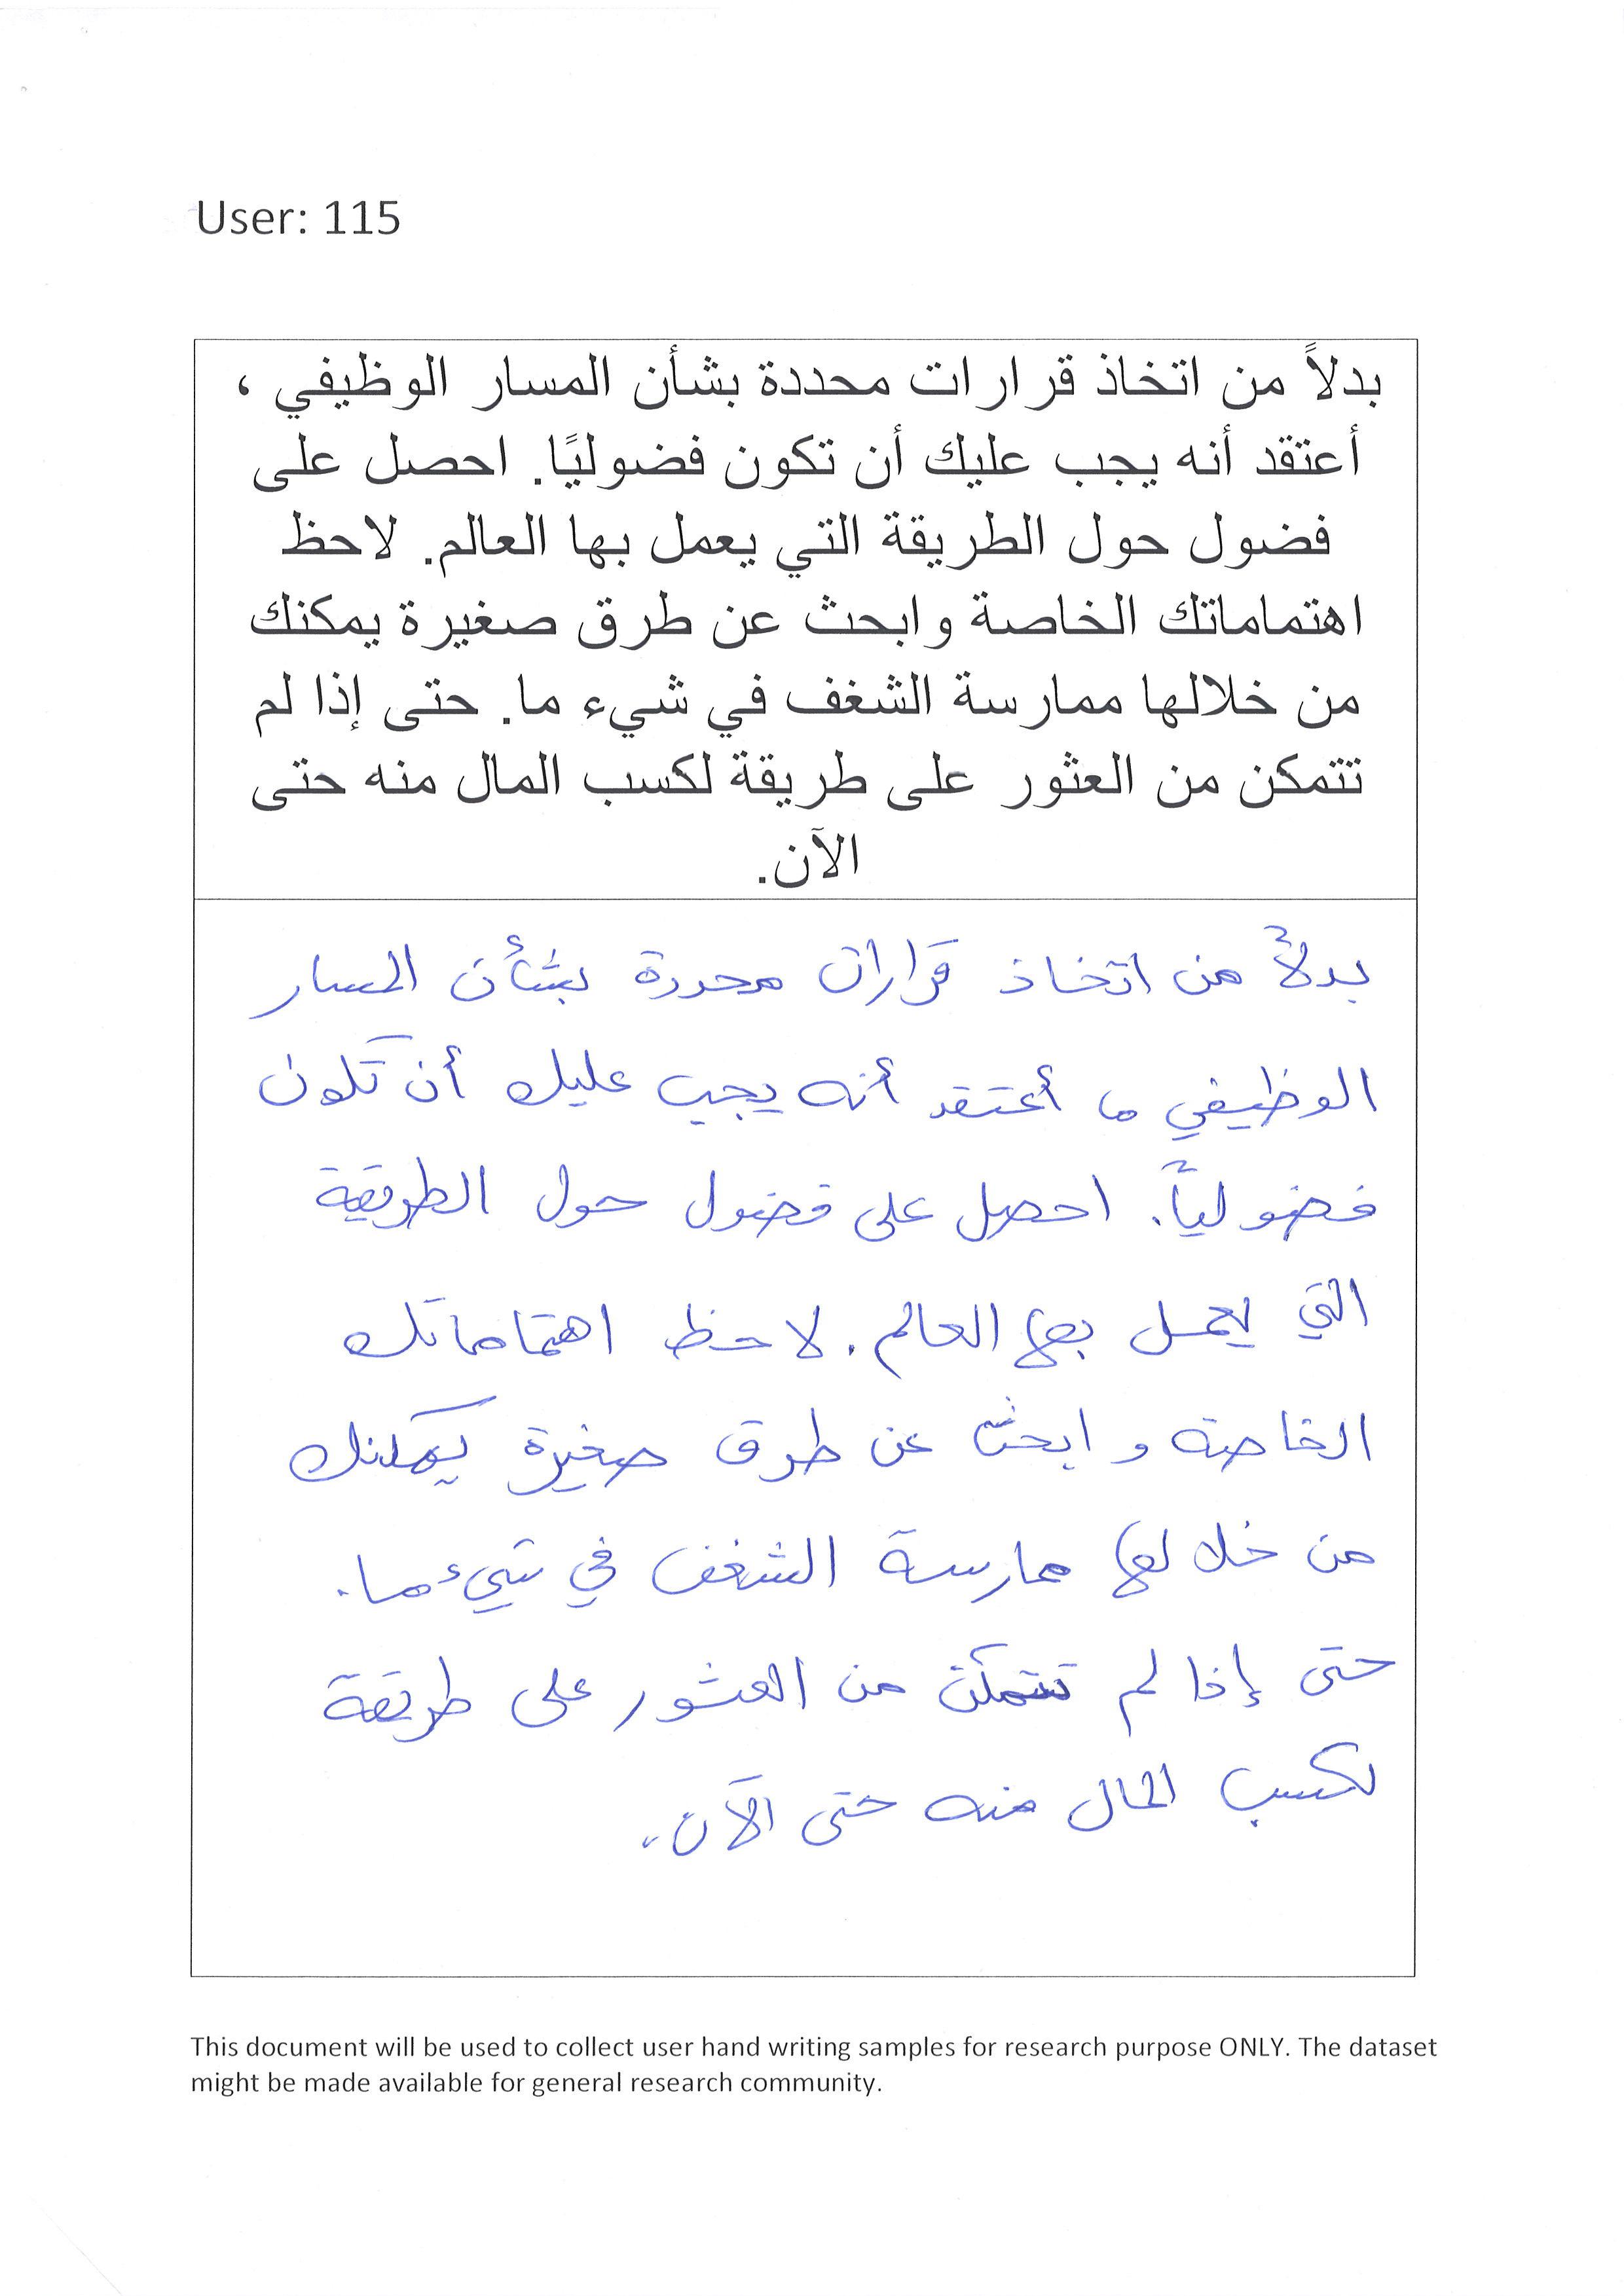 User: 115
بدلاً من اتخاذ قرارات محددة بشأن المسار الوظيفي ،
أعتقد أنه يجب عليك أن تكون فضوليًا. احصل على
فضول حول الطريقة التي يعمل بها العالم. لاحظ
اهتماماتك الخاصة وابحث عن طرق صغيرة يمكنك
من خلالها ممارسة الشغف في شيء ما. حتى إذا لم
تتمكن من العثور على طريقة لكسب المال منه حتى
الآن.
بدلاً من اتخاذ قرارات محددة بشأن المسار
الوظيفي ، أعتقد أنه يجب عليك أن تكون
فضولياً. احصل على فضول حول الطريقة
التي يعمل بها العالم. لاحظ اهتماماتك
الخاصة و ابحث عن طرق صغيرة يمكنك
من خلالها ممارسة الشغف في شيء ما.
حتى إذا لم تتمكن من العثور على طريقة
لكسب المال منه حتى الآن.
This document will be used to collect user hand writing samples for research purpose ONLY. The dataset
might be made available for general research community.